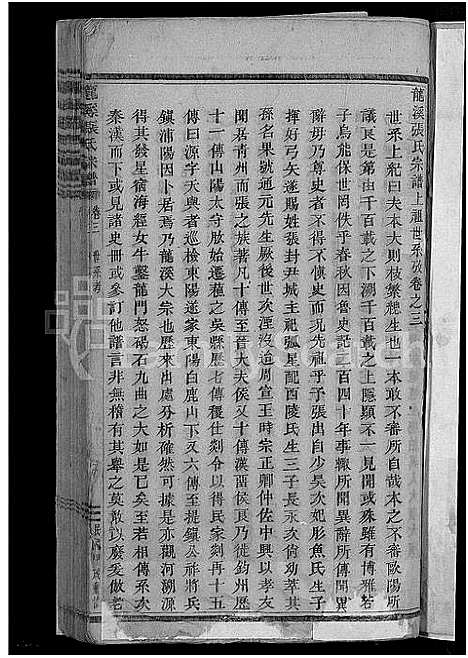 龍溪張氏宗譜上祖世系攷卷之三
世系上紀曰夫本大則枝繁總生也一本敢不審所自哉本之不審歐陽所
議艮是第由千百載之下溯千百載之上隱顯不一見聞或殊雖有博雅君
子烏能保世罔佚乎春秋因魯史記二百四十年事輙所聞異辭所傳聞異
辭毋乃尊史者不愼史而現先祖乎予張出自少吳次妃彤魚氏生子
揮好弓矢遂賜姓張封尹城主祀弧星配酉陵氏生三子長永次倘幼萃其
孫名果號通元先生厥後世次湮沒迨周宣王時宗正卿仲佐中興以孝友
聞居靑州而張之族著凡十傳至晉大夫侯又十傳漢兩侯艮乃徙鈞州歷
十一傳山陽太守肱始遷蘊之吳縣歷七傳稷仕剡令以得民家剡再十五
傳曰源字天與者巡檢東浦樂道遂家東陽白鹿山下又六傳至提鎭公祥將兵
鎭浦陽因卜居焉乃龍溪大宗也歷來出處分析確然可據是亦觀河溯源
得其發星宿海經女牛鑿龍門怒碣石九曲之大如是已矣至若相傳系次
秦漢而下或見諸史冊或參訂他譜言非無稽有其舉之莫敢以廢爰倣老
龍溪張氏宗譜
卷三